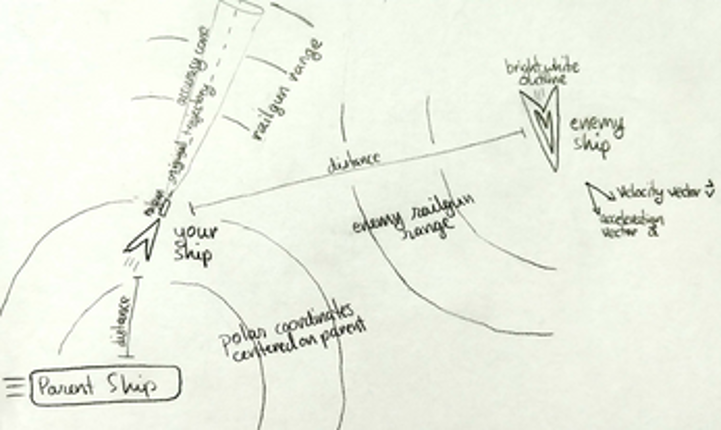 accuracy cone
original trajectory
railgun range
bright white
outline
enemy
ship
distance
velocity vector v
acceleration
vector a
enemy railgun
range
your
ship
distance
polar coordinates
centered on parent
Parent Ship